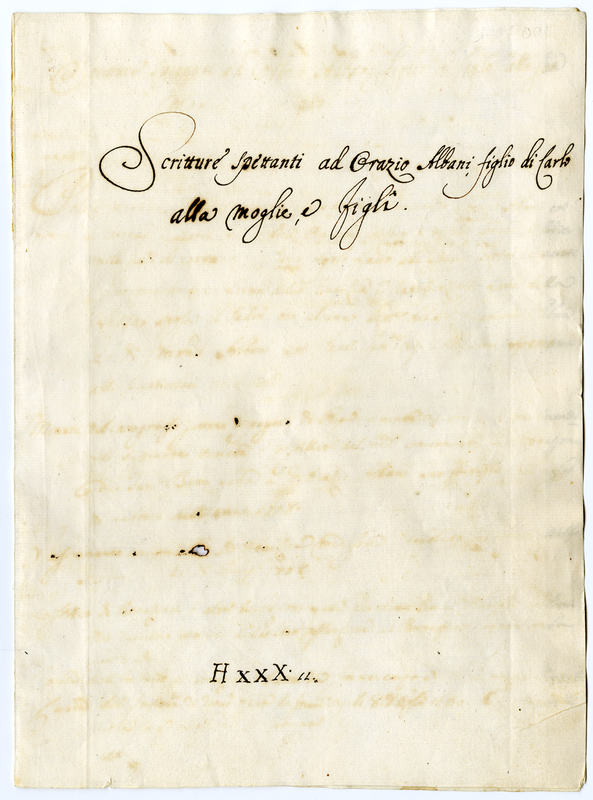 Scritture spettanti ad Orazio Albani figlio di Carlo
alla moglie, e figli.
H XXX. 11.